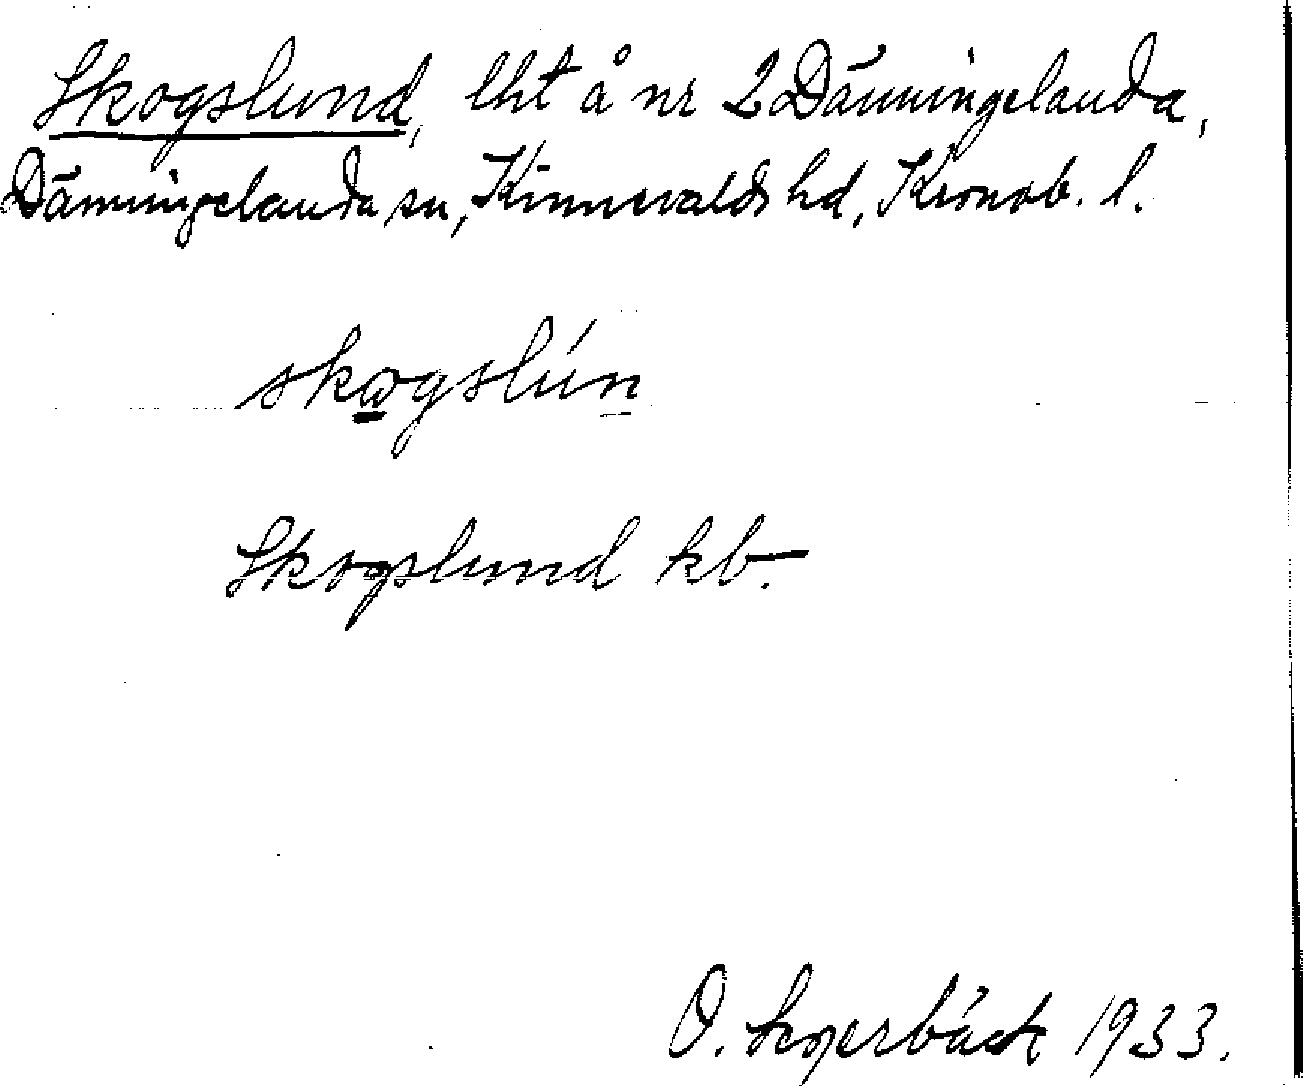 Skogslund, lht å nr 2 Dänningelanda,
Dänningelanda sn, Kinnevalds hd, Kronob. l.
skogslún
Skogslund kb.
O. Segerbäck 1933.